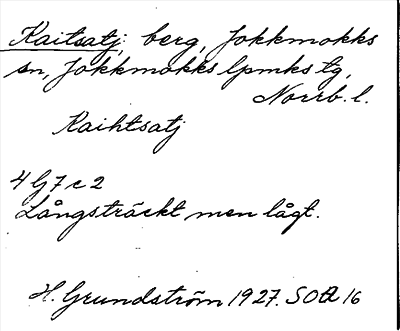 Kaitsatj, berg, Jokkmokks
sn, Jokkmokks lpmks tg,
Norrb. l.
Kaihtsatj
4 G 7 c 2
Långsträckt men lågt.
H. Grundström 1927. SOA 16